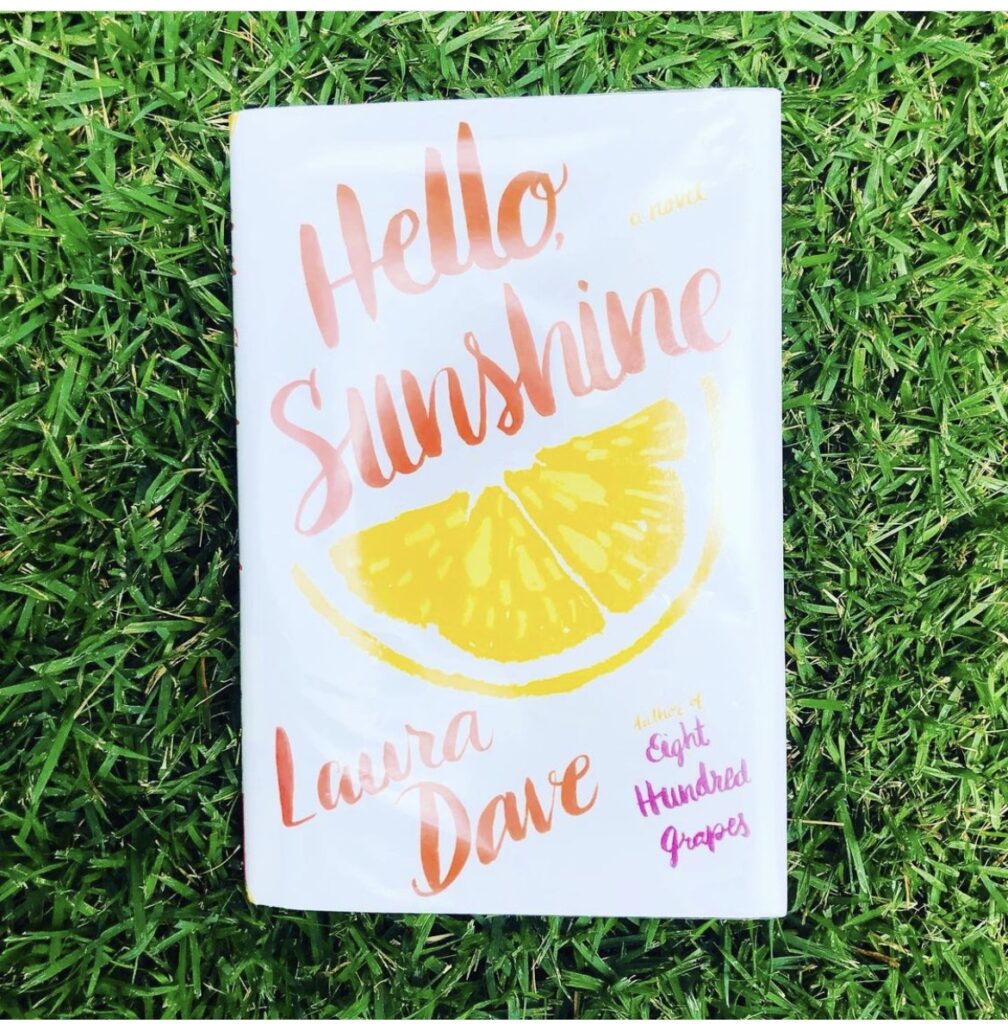 Hello,
a novel
Sunshine
Laura
Dave
Author of
Eight
Hundred
Grapes